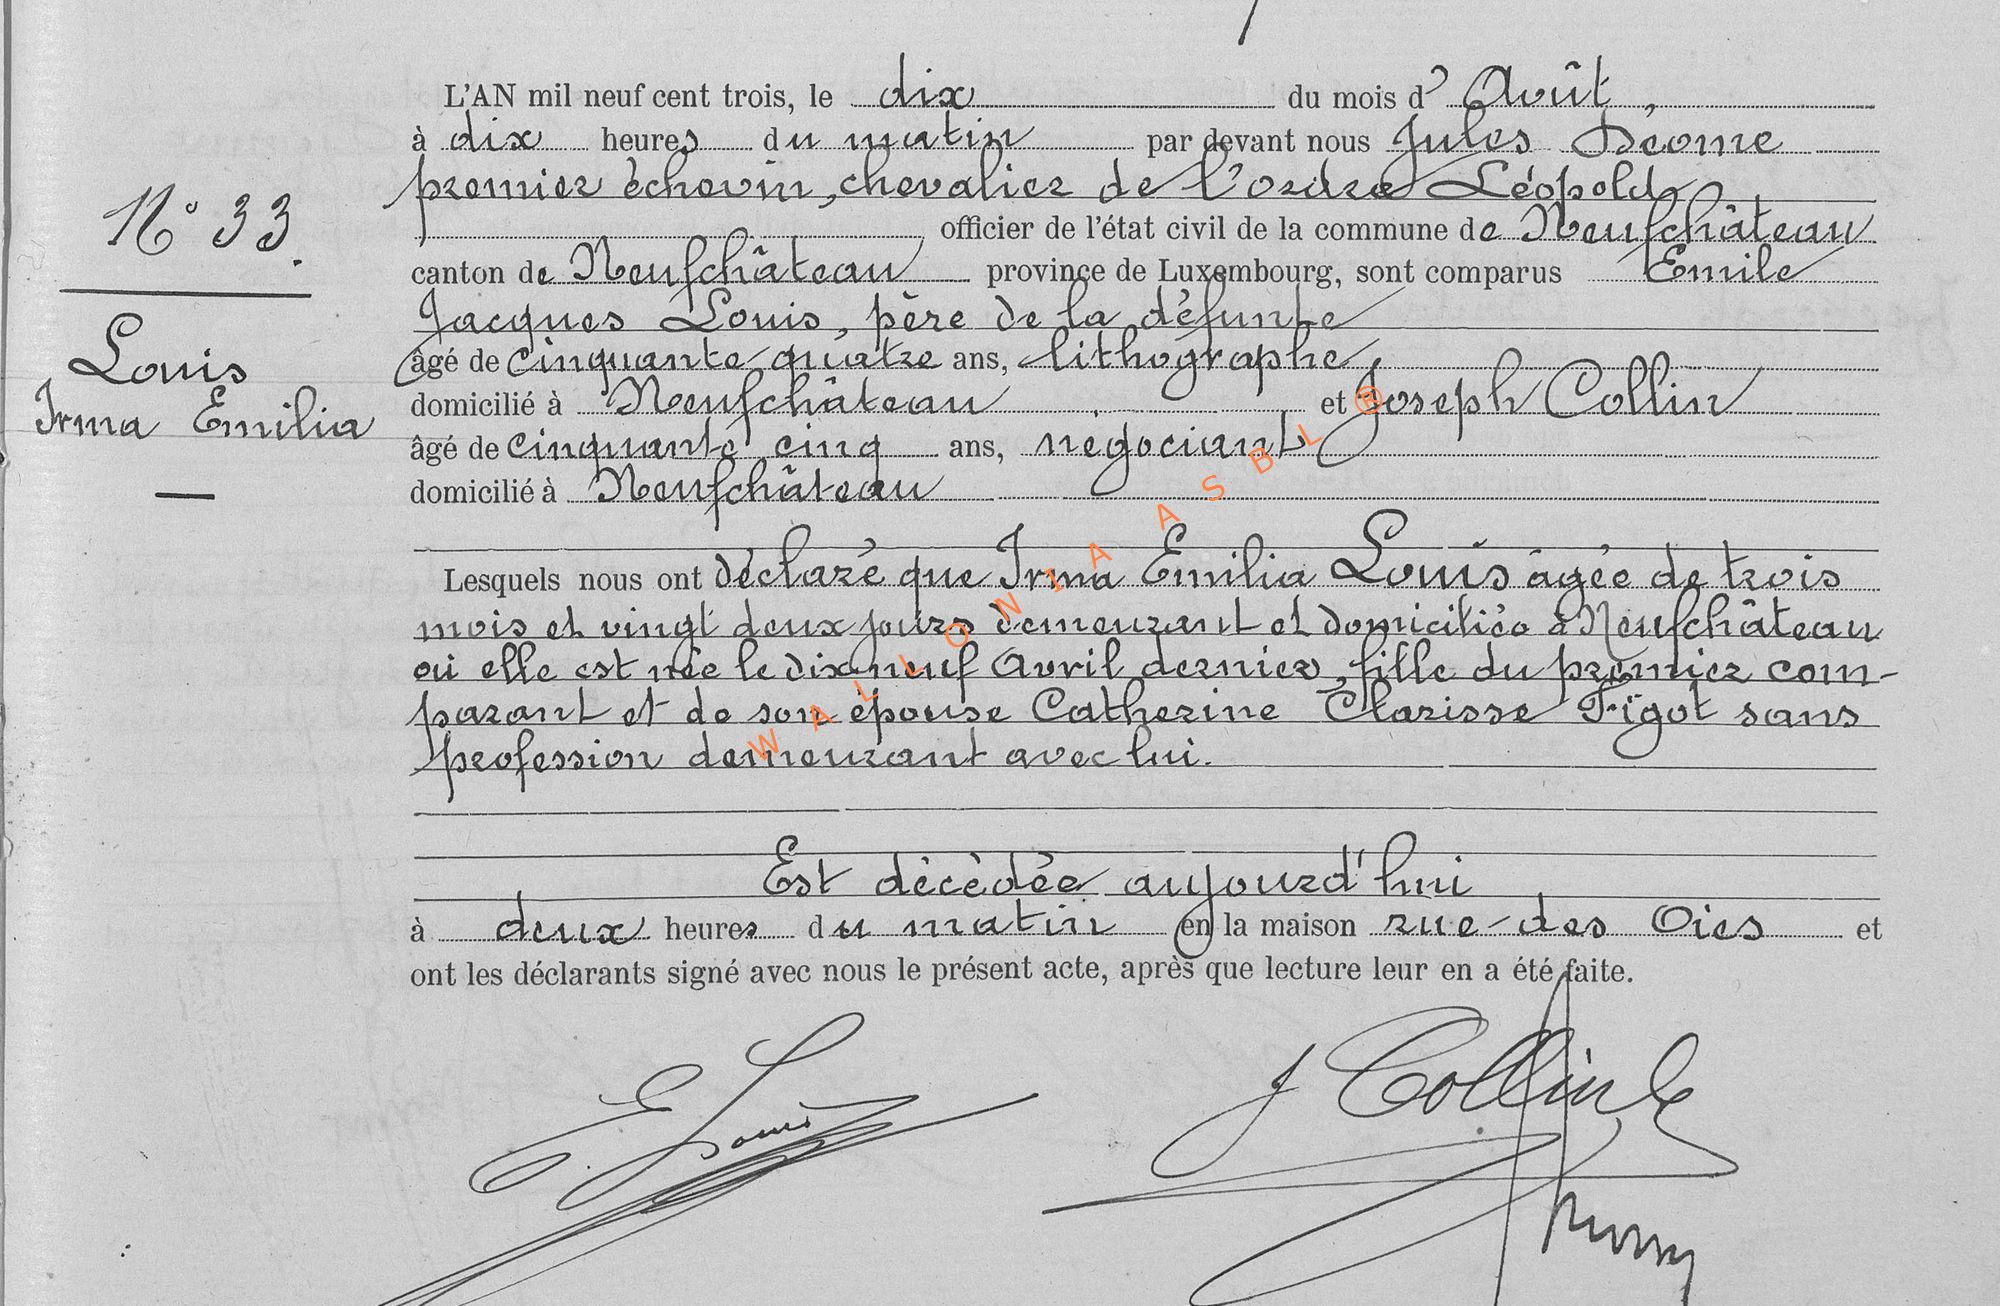 L'AN mil neuf cent trois, le dix du mois d' Août,
à dix heures du matin par devant nous Jules Déome
premier échevin, chevalier de l'ordre Léopold
officier de l'état civil de la commune de Neufchâteau
canton de Neufchâteau province de Luxembourg, sont comparus Emile
Jacques Louis, père de la défunte
âgé de cinquante quatre ans, lithographe
domicilié à Neufchâteau et Joseph Collin
âgé de cinquante cinq ans, négociant
domicilié à Neufchâteau
N° 33.
Louis
Irma Emilia
Lesquels nous ont déclaré que Irma Emilia Louis âgée de trois
mois et vingt deux jours demeurant et domiciliée à Neufchâteau
où elle est née le dix neuf Avril dernier, fille du premier com-
parant et de son épouse Catherine Clarisse Figot sans
profession demeurant avec lui.
Est décédée aujourd'hui
à deux heures du matin en la maison rue des Oies et
ont les déclarants signé avec nous le présent acte, après que lecture leur en a été faite.
E. Louis
J Collin
WALLONIA ASBL ®